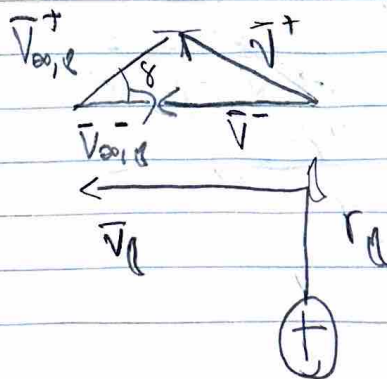 V̄⁺∞,☾ V̄⁺
δ
V̄⁻∞,☾ V̄⁻
V̄☾ r☾